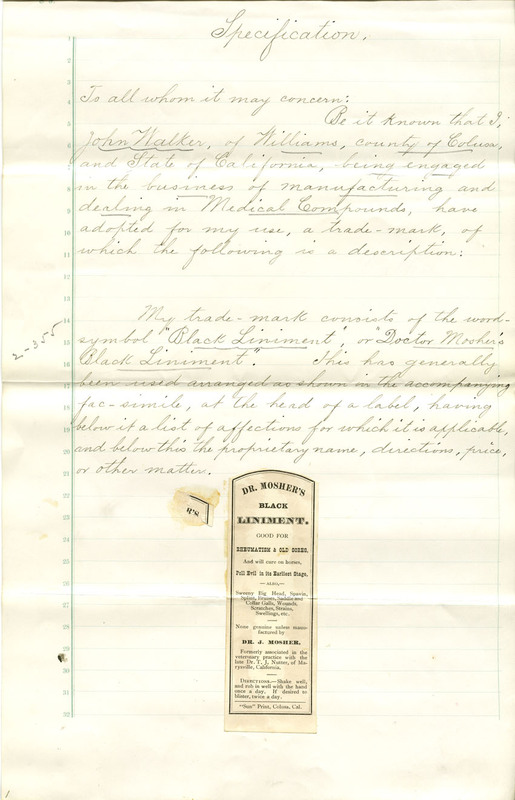 Specification.
To all whom it may concern:
Be it known that I,
John Walker, of Williams, county of Colusa,
and State of California, being engaged
in the business of manufacturing and
dealing in Medical Compounds, have
adopted for my use, a trade-mark, of
which the following is a description:
My trade-mark consists of the word-
symbol "Black Liniment", or "Doctor Mosher's
Black Liniment". This has generally
been used arranged as shown in the accompanying
fac-simile, at the head of a label, having
below it a list of affections for which it is applicable,
and below this the proprietary name, directions, price,
or other matter.
2-355
R'S
DR. MOSHER'S
BLACK
LINIMENT.
GOOD FOR
RHEUMATISM & OLD SORES,
And will cure on horses,
Poll Evil in its Earliest Stage,
—ALSO,—
Sweeny Big Head, Spavin,
Splint, Bruises, Saddle and
Collar Galls, Wounds,
Scratches, Strains,
Swellings, etc.
None genuine unless manu-
factured by
DR. J. MOSHER,
Formerly associated in the
veterinary practice with the
late Dr. T. J. Nutter, of Ma-
rysville, California.
DIRECTIONS.—Shake well,
and rub in well with the hand
once a day. If desired to
blister, twice a day.
"Sun" Print, Colusa, Cal.
1
2
3
4
5
6
7
8
9
10
11
12
13
14
15
16
17
18
19
20
21
22
23
24
25
26
27
28
29
30
31
32